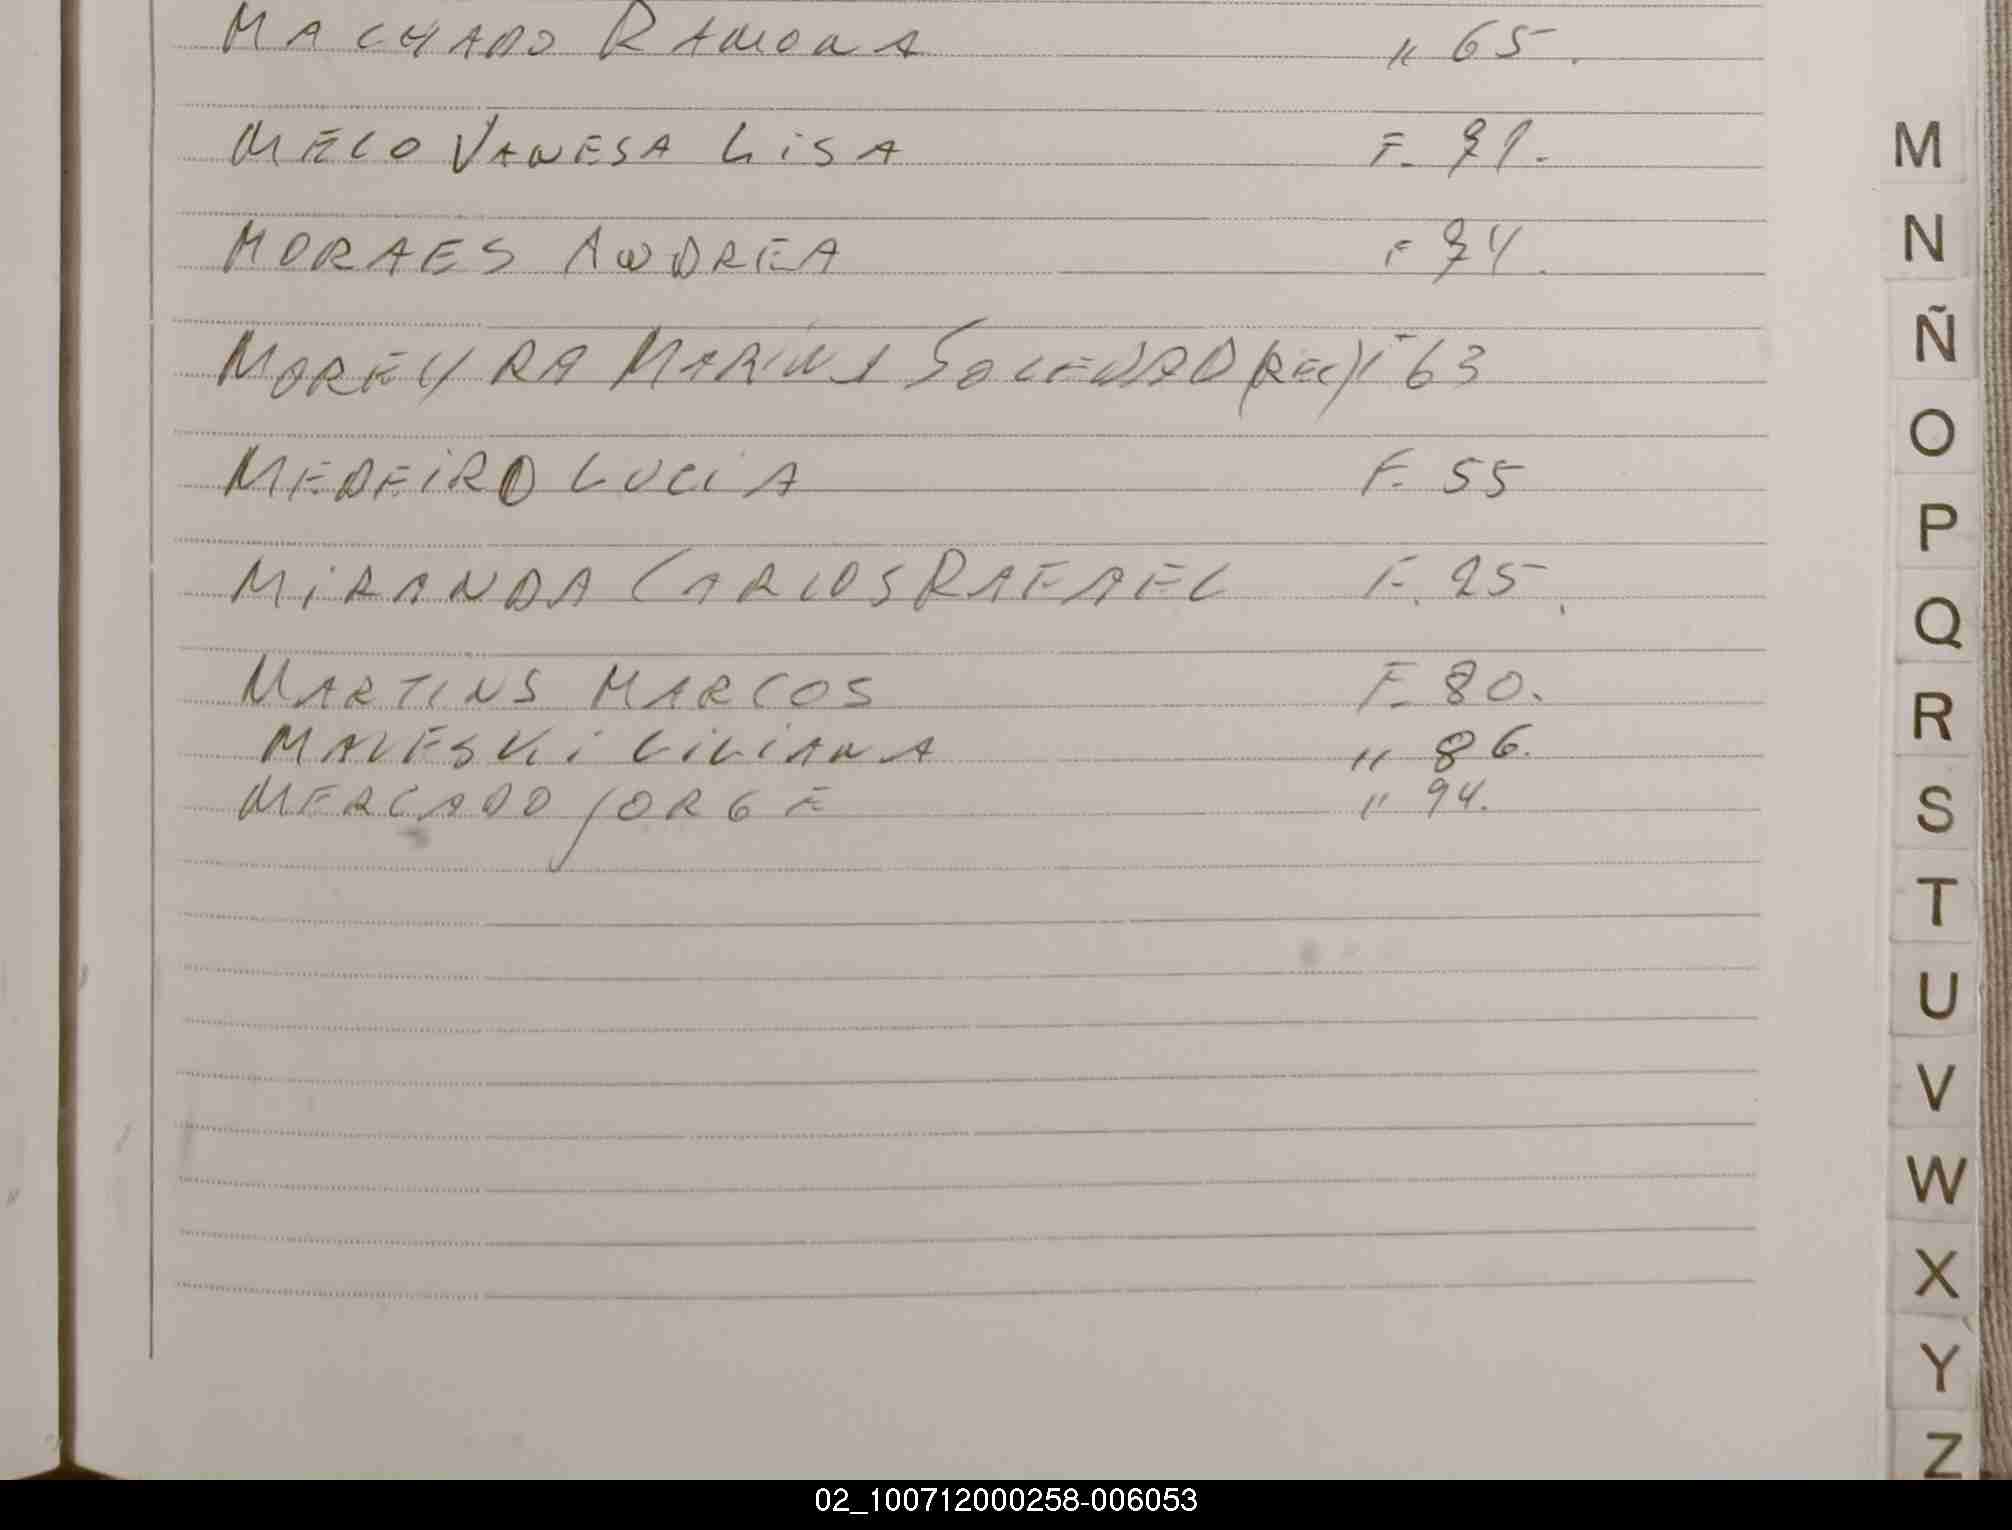 MACHADO RAMONA " 65.
MELO VANESA LISA F. 71.
MORAES ANDREA F 74.
MOREYRA MARINA SOLEDAD (REC) F 63
MEDEIRO LUCIA F. 55
MIRANDA CARLOS RAFAEL F. 25.
MARTINS MARCOS F. 80.
MALESKI LILIANA " 86.
MERCADO JORGE " 94.
M
N
Ñ
O
P
Q
R
S
T
U
V
W
X
Y
Z
02_100712000258-006053